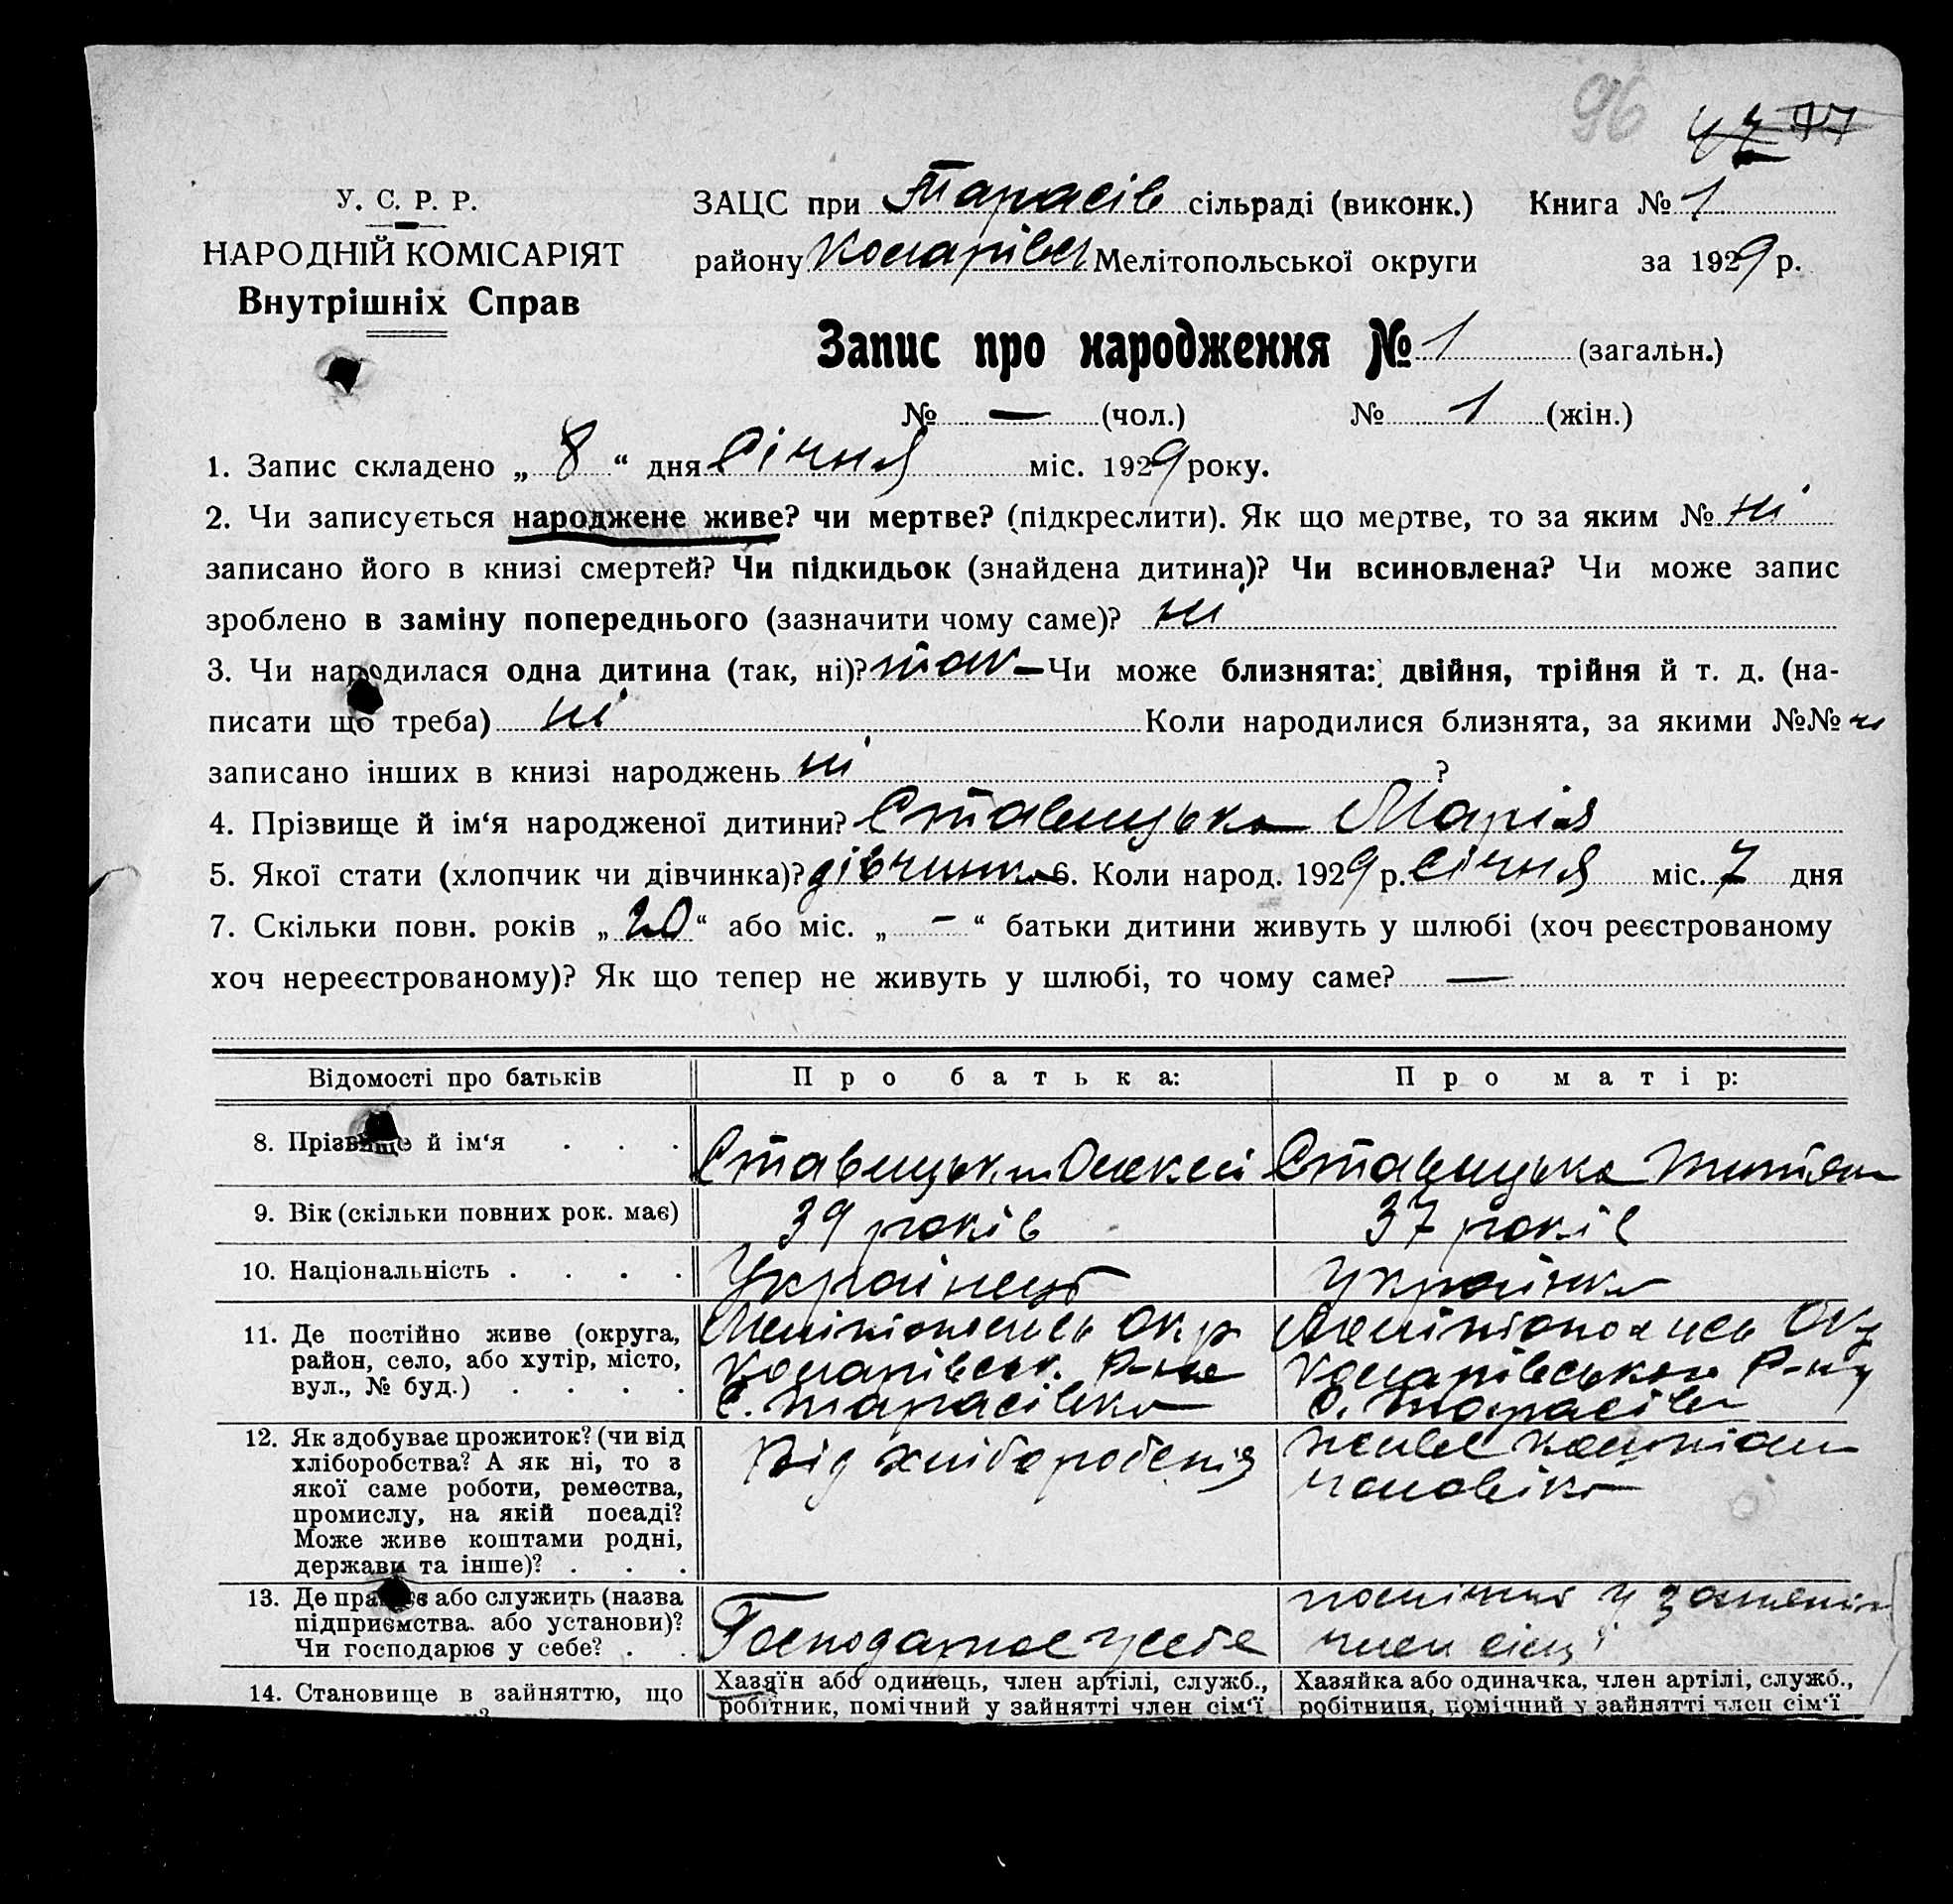 96
У. С. Р. Р.
НАРОДНІЙ КОМІСАРІЯТ
Внутрішніх Справ
ЗАЦС при Тарасів сільраді (виконк.) Книга № 1
району Комарівськ Мелітопольської округи за 1929 р.
Запис про народження № 1 (загальн.)
№ — (чол.) № 1 (жін.)
1. Запис складено „ 8 “ дня Січня міс. 1929 року.
2. Чи записується народжене живе? чи мертве? (підкреслити). Як що мертве, то за яким № ні
записано його в книзі смертей? Чи підкидьок (знайдена дитина)? Чи всиновлена? Чи може запис
зроблено в заміну попереднього (зазначити чому саме)? ні
3. Чи народилася одна дитина (так, ні)? так — Чи може близнята: двійня, трійня й т. д. (на-
писати що треба) ні Коли народилися близнята, за якими №№ ні
записано інших в книзі народжень ні ?
4. Прізвище й ім‘я народженої дитини? Ставицька Марія
5. Якої стати (хлопчик чи дівчинка)? дівчинка 6. Коли народ. 1929 р. Січня міс. 7 дня
7. Скільки повн. років „ 20 “ або міс. „ — “ батьки дитини живуть у шлюбі (хоч реєстрованому
хоч нереєстрованому)? Як що тепер не живуть у шлюбі, то чому саме? —
Відомості про батьків Про батька: Про матір:
8. Прізвище й ім‘я . . . Ставицький Олексій Ставицька
9. Вік (скільки повних рок. має) 39 років 37 років
10. Національність . . . . Українець Українка
11. Де постійно живе (округа,
район, село, або хутір, місто,
вул., № буд.) . . . .
Мелітопольськ Окр
Комарівськ. Р-на
С. Тарасівка
Мелітопольськ Окр
Комарівського Р-ну
С. Тарасівка
12. Як здобуває прожиток? (чи від
хліборобства? А як ні, то з
якої саме роботи, ремества,
промислу, на якій посаді?
Може живе коштами родні,
держави та інше)? . . .
Від хліборобства
живе коштами
чоловіка
13. Де працює або служить (назва
підприємства або установи)?
Чи господарює у себе? . .
Господарює у себе
помічний у занятті
член сімї
14. Становище в зайняттю, що
Хазяїн або одинець, член артілі, служб.,
робітник, помічний у зайнятті член сім‘ї
Хазяйка або одиначка, член артілі, служб.,
робітниця, помічний у зайнятті член сім‘ї